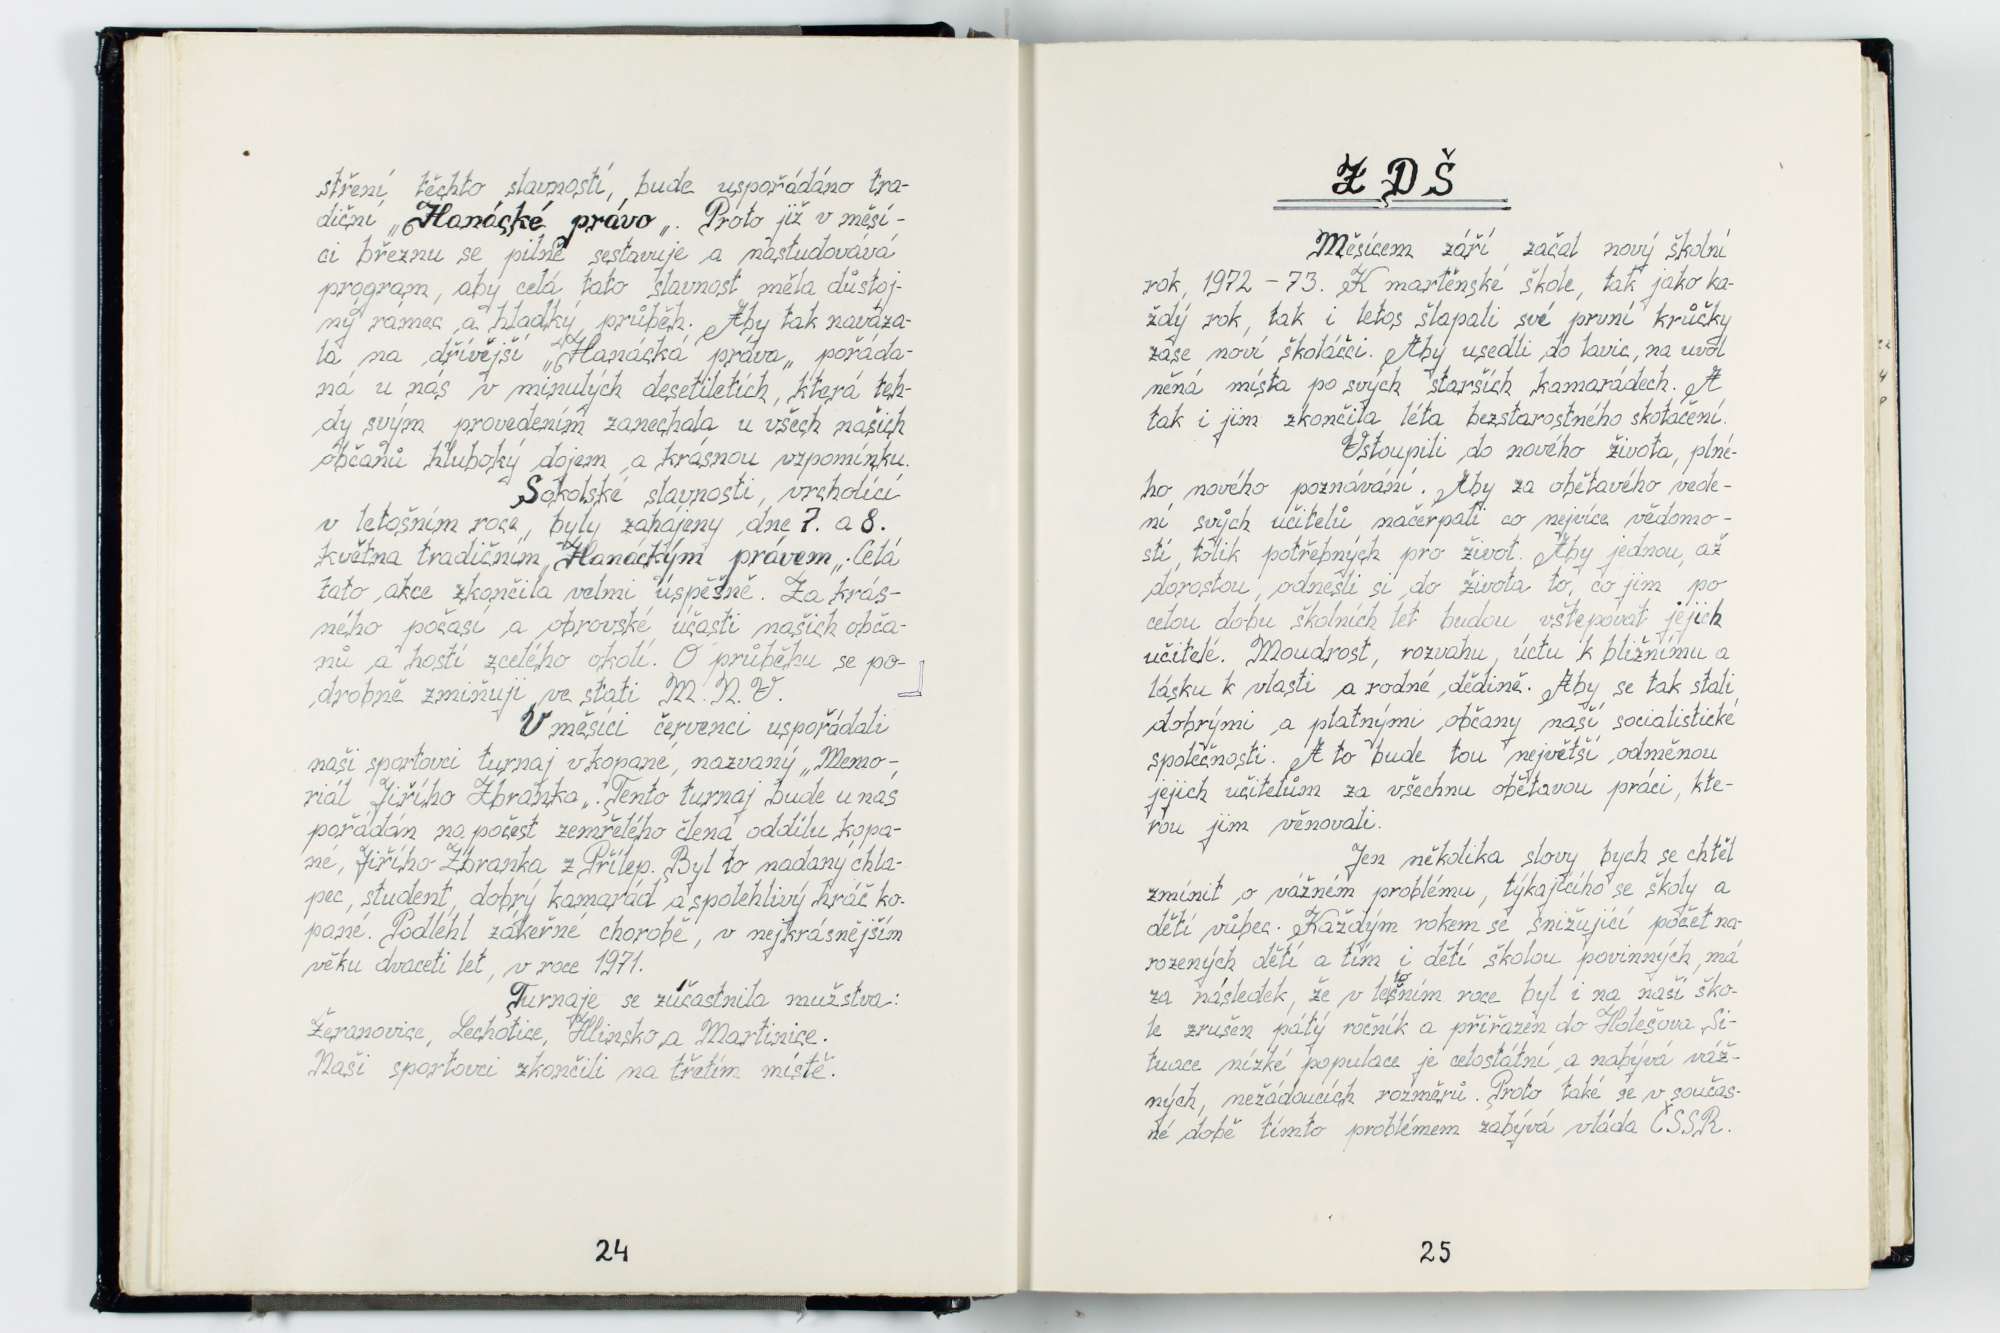 stření těchto slavností, bude uspořádáno tra-
diční „Hanácké právo„. Proto již v měsí-
ci březnu se pilně sestavuje a nastudovává
program, aby celá tato slavnost měla důstoj-
ný rámec a hladký průběh. Aby tak naváza-
la na dřívější „Hanácká práva„ pořáda-
ná u nás v minulých desetiletích, která teh-
dy svým provedením zanechala u všech našich
občanů hluboký dojem a krásnou vzpomínku.
Sokolské slavnosti, vrcholící
v letošním roce, byly zahájeny dne 7. a 8.
května tradičním „Hanáckým právem„. Celá
tato akce zkončila velmi úspěšně. Za krás-
ného počasí a obrovské účasti našich obča-
nů a hostí zcelého okolí. O průběhu se po-
drobně zmiňuji ve stati M.N.V.
V měsíci červenci uspořádali
naši sportovci turnaj vkopané, nazvaný „Memo-
riál Jiřího Zbranka„. Tento turnaj bude u nás
pořádán na počest zemřelého člena oddílu kopa-
né, Jiřího Zbranka z Přílep. Byl to nadaný chla-
pec, student, dobrý kamarád a spolehlivý hráč ko-
pané. Podlehl zákeřné chorobě, v nejkrásnějším
věku dvaceti let, v roce 1971.
Turnaje se zúčastnila mužstva:
Žeranovice, Lechotice, Hlinsko a Martinice.
Naši sportovci zkončili na třetím místě.
24
ZDŠ
Měsícem září začal nový školní
rok, 1972 - 73. K martěnské škole, tak jako ka-
ždý rok, tak i letos šlapali své první krůčky
zase noví školáčci. Aby usedli do lavic, na uvol
něná místa po svých starších kamarádech. A
tak i jim zkončila léta bezstarostného skotačení.
Vstoupili do nového života, plné-
ho nového poznávání. Aby za obětavého vede-
ní svých učitelů načerpali co nejvíce vědomo-
stí, tolik potřebných pro život. Aby jednou, až
dorostou, odnesli si do života to, co jim po
celou dobu školních let budou vštěpovat jejich
učitelé. Moudrost, rozvahu, úctu k bližnímu a
lásku k vlasti a rodné dědině. Aby se tak stali
dobrými a platnými občany naší socialistické
společnosti. A to bude tou největší odměnou
jejich učitelům za všechnu obětavou práci, kte-
rou jim věnovali.
Jen několika slovy bych se chtěl
zmínit o vážném problému, týkajícího se školy a
dětí vůbec. Každým rokem se snižující počet na-
rozených dětí a tím i dětí školou povinných, má
za následek, že v letošním roce byl i na naší ško-
le zrušen pátý ročník a přiřazen do Holešova. Si-
tuace nízké populace je celostátní a nabývá váž-
ných, nežádoucích rozměrů. Proto také se v součas-
né době tímto problémem zabývá vláda ČSSR.
25